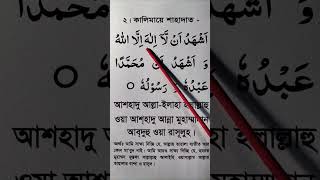 ২। কালিমায়ে শাহাদাত -
اَشْهَدُ اَنْ لَّآ اِلٰهَ اِلَّا اللهُ
وَ اَشْهَدُ اَنَّ مُحَمَّدًا
عَبْدُهٗ وَ رَسُوْلُهٗ ○
আশহাদু আল্লা-ইলাহা ইল্লাল্লাহু
ওয়া আশহাদু আন্না মুহাম্মাদান
আবদুহু ওয়া রাসূলুহ।
অর্থঃ আমি সাক্ষ্য দিচ্ছি যে, আল্লাহ